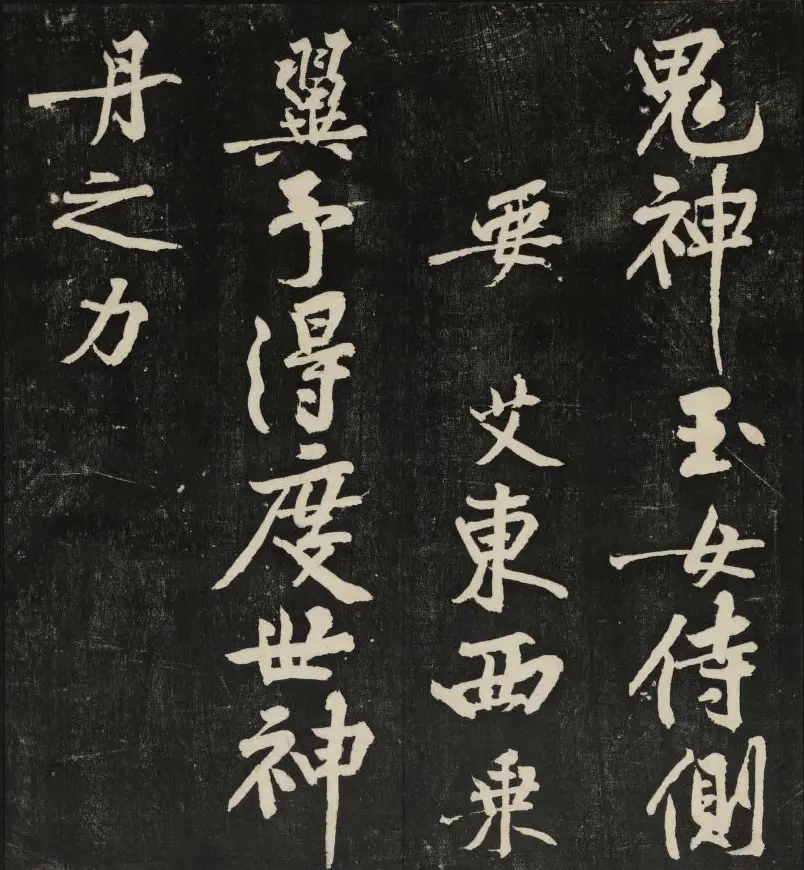 鬼神玉女侍側
要艾東西乗
翼予得度世神
丹之力